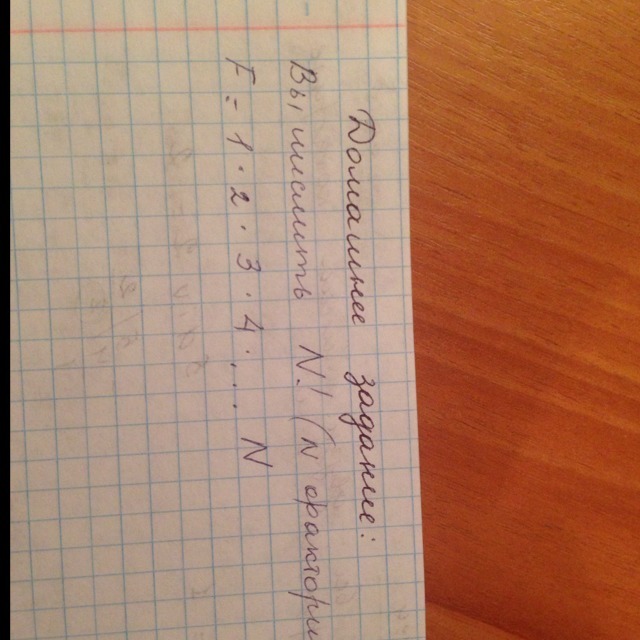 Домашнее задание:
Вычислить N! (N факториа
F = 1 · 2 · 3 · 4 · ... N